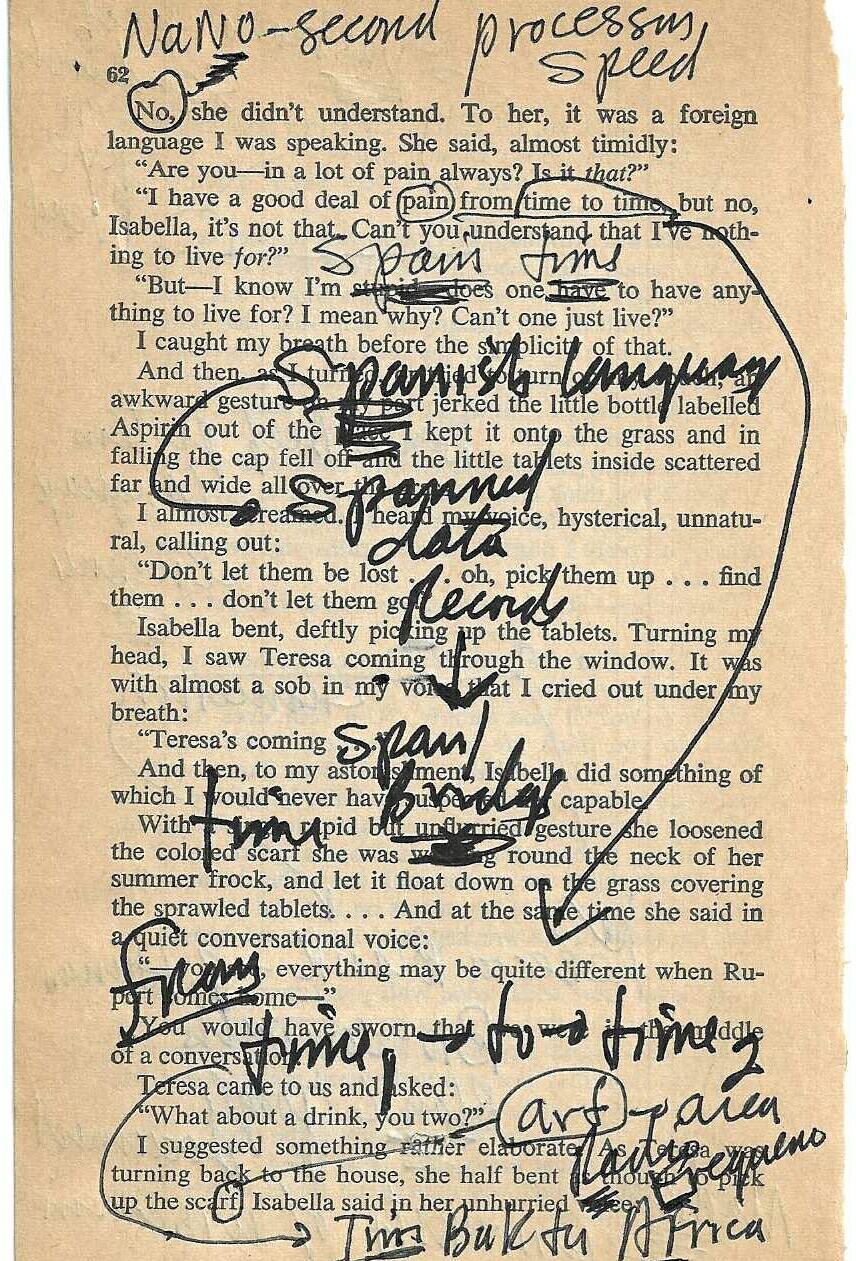 NaNo-second processing
speed
62
No, she didn't understand. To her, it was a foreign
language I was speaking. She said, almost timidly:
"Are you—in a lot of pain always? Is it that?"
"I have a good deal of pain from time to time, but no,
Isabella, it's not that. Can't you understand that I've noth-
ing to live for?"
Spain time
"But—I know I'm stupid—does one have to have any-
thing to live for? I mean why? Can't one just live?"
I caught my breath before the simplicity of that.
Spanish language
And then, as I turned, an
awkward gesture on my part jerked the little bottle labelled
Aspirin out of the place I kept it onto the grass and in
falling the cap fell off and the little tablets inside scattered
far and wide all over the
Spanned
I almost screamed. I heard my voice, hysterical, unnatu-
ral, calling out:
data
"Don't let them be lost . . . oh, pick them up . . . find
them . . . don't let them go
Records
Isabella bent, deftly picking up the tablets. Turning my
head, I saw Teresa coming through the window. It was
with almost a sob in my voice that I cried out under my
breath:
"Teresa's coming
Span/
And then, to my astonishment, Isabella did something of
which I would never have suspected capable.
Bridge
time
With a rapid but unflurried gesture she loosened
the colored scarf she was wearing round the neck of her
summer frock, and let it float down on the grass covering
the sprawled tablets. . . . And at the same time she said in
a quiet conversational voice:
"—you see, everything may be quite different when Ru-
pert comes home—"
From
You would have sworn that we were in the middle
of a conversation.
time, 1 → to → time 2
Teresa came to us and asked:
"What about a drink, you two?"
art - area
I suggested something rather elaborate. As Teresa was
turning back to the house, she half bent as though to pick
up the scarf. Isabella said in her unhurried voice:
Tim BukTu Africa